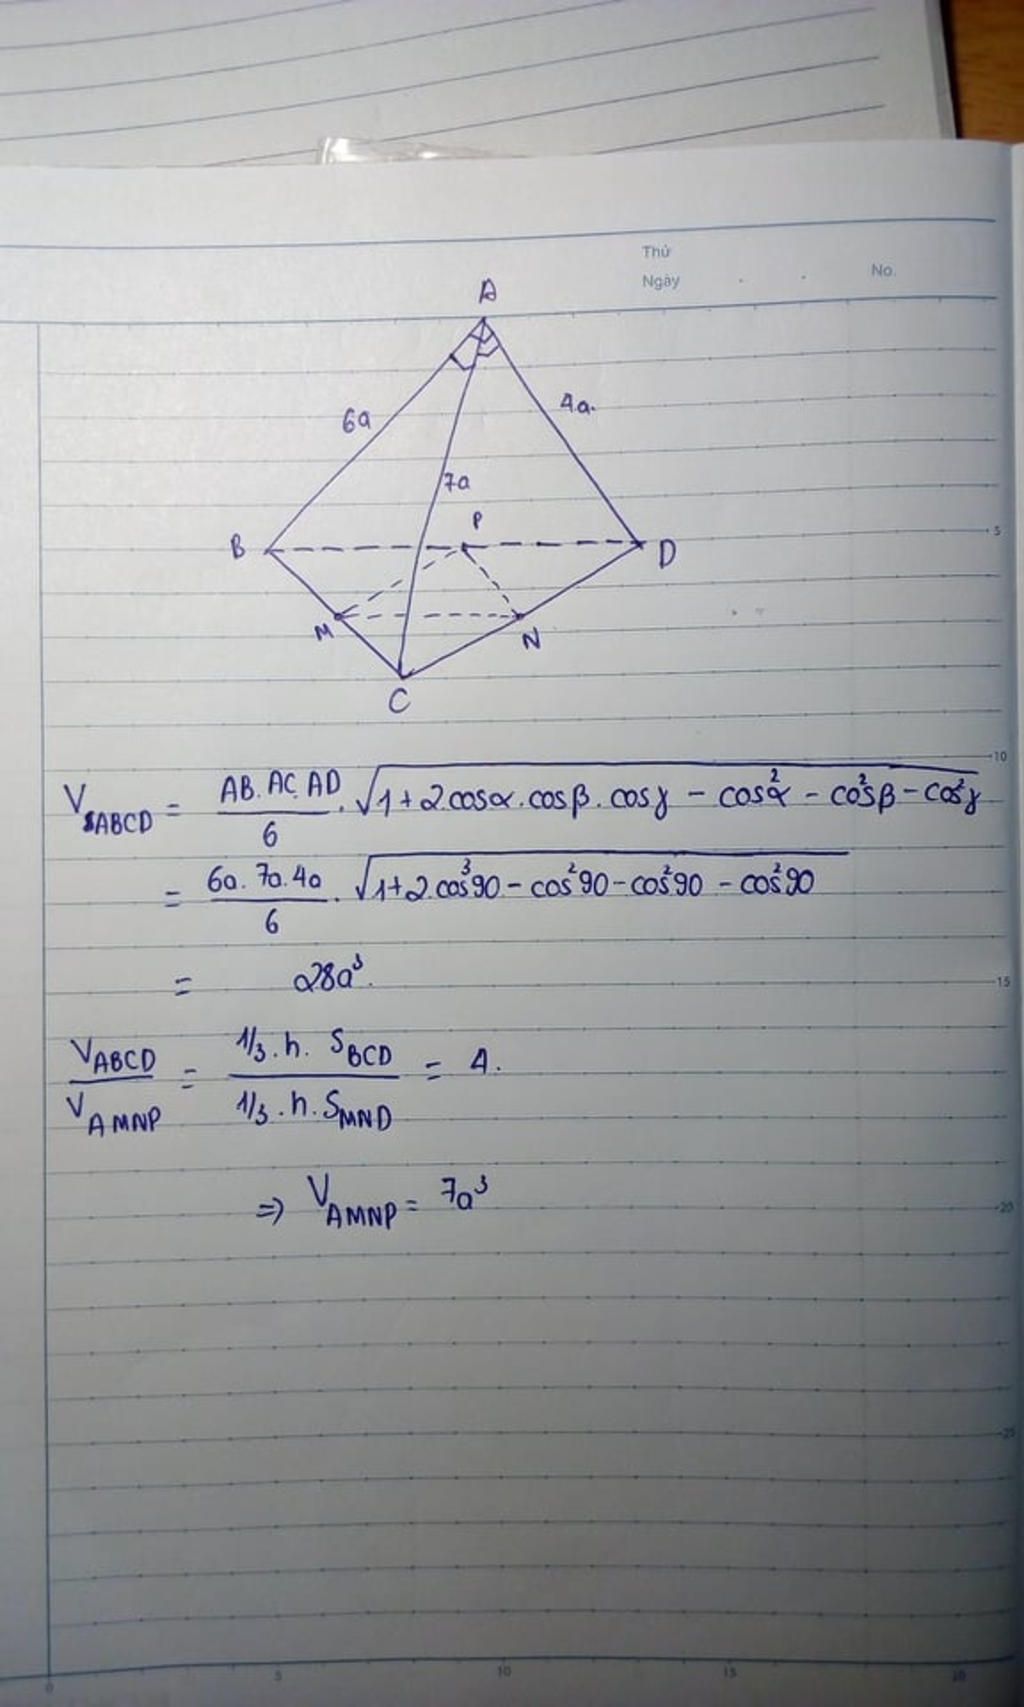 Thứ
Ngày . . No.
A
6a
4a.
7a
P
B
D
M
N
C
5
10
V_{SABCD} = \frac{AB.AC.AD}{6} . \sqrt{1+2.cosα.cosβ.cosγ - cos²α - cos²β - cos²γ}
= \frac{6a.7a.4a}{6} . \sqrt{1+2.cos³90 - cos²90 - cos²90 - cos²90}
= 28a³.
15
\frac{V_{ABCD}}{V_{AMNP}} = \frac{1/3.h.S_{BCD}}{1/3.h.S_{MND}} = 4.
⇒ V_{AMNP} = 7a³
20
25
0 5 10 15 20